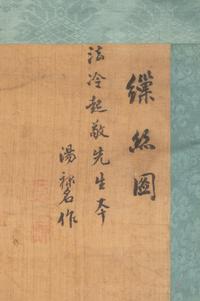 繅絲圖
法冷起敬先生本
湯祿名作